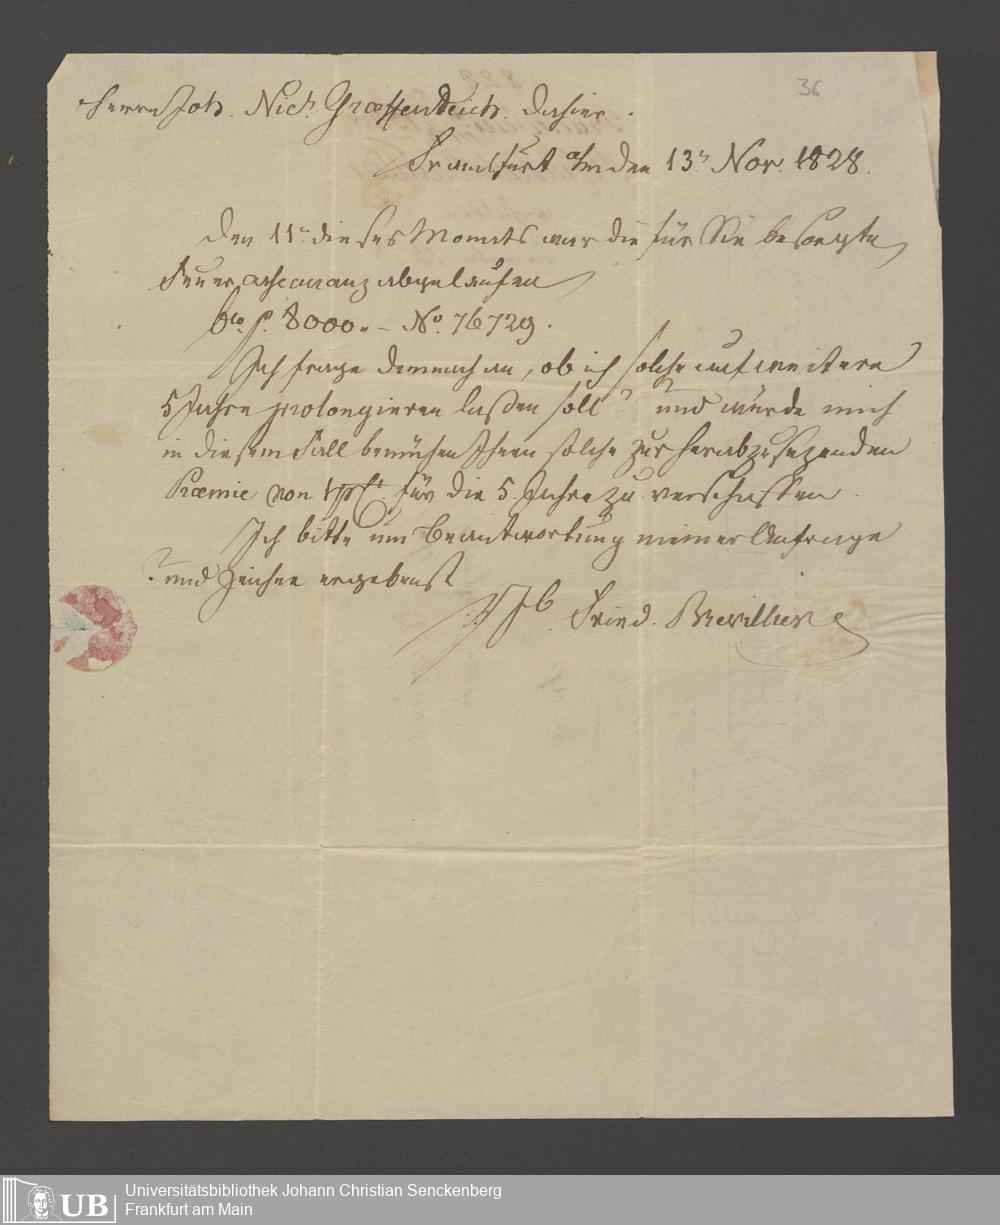 36
Herrn Joh. Nich. Graeffendeich. dahier.
Frankfurt a/m den 13n Nov. 1828.
Den 11n dieses Monats war die für Sie besorgte
Feuer assecuranz abgelaufen
pro f. 8000.- No. 76729.
Ich frage demnach an, ob ich solche auf weitere
5 Jahre prolongieren laßen soll? und würde mich
in diesem Fall bemühen Ihnen solche zur herabzusezenden
Praemie von für die 5. Jahre zu verschaffen.
Ich bitte um Beantwortung meiner Anfrage
und zeichne ergebenst
Fried. Brevillier
Universitätsbibliothek Johann Christian Senckenberg
Frankfurt am Main
UB